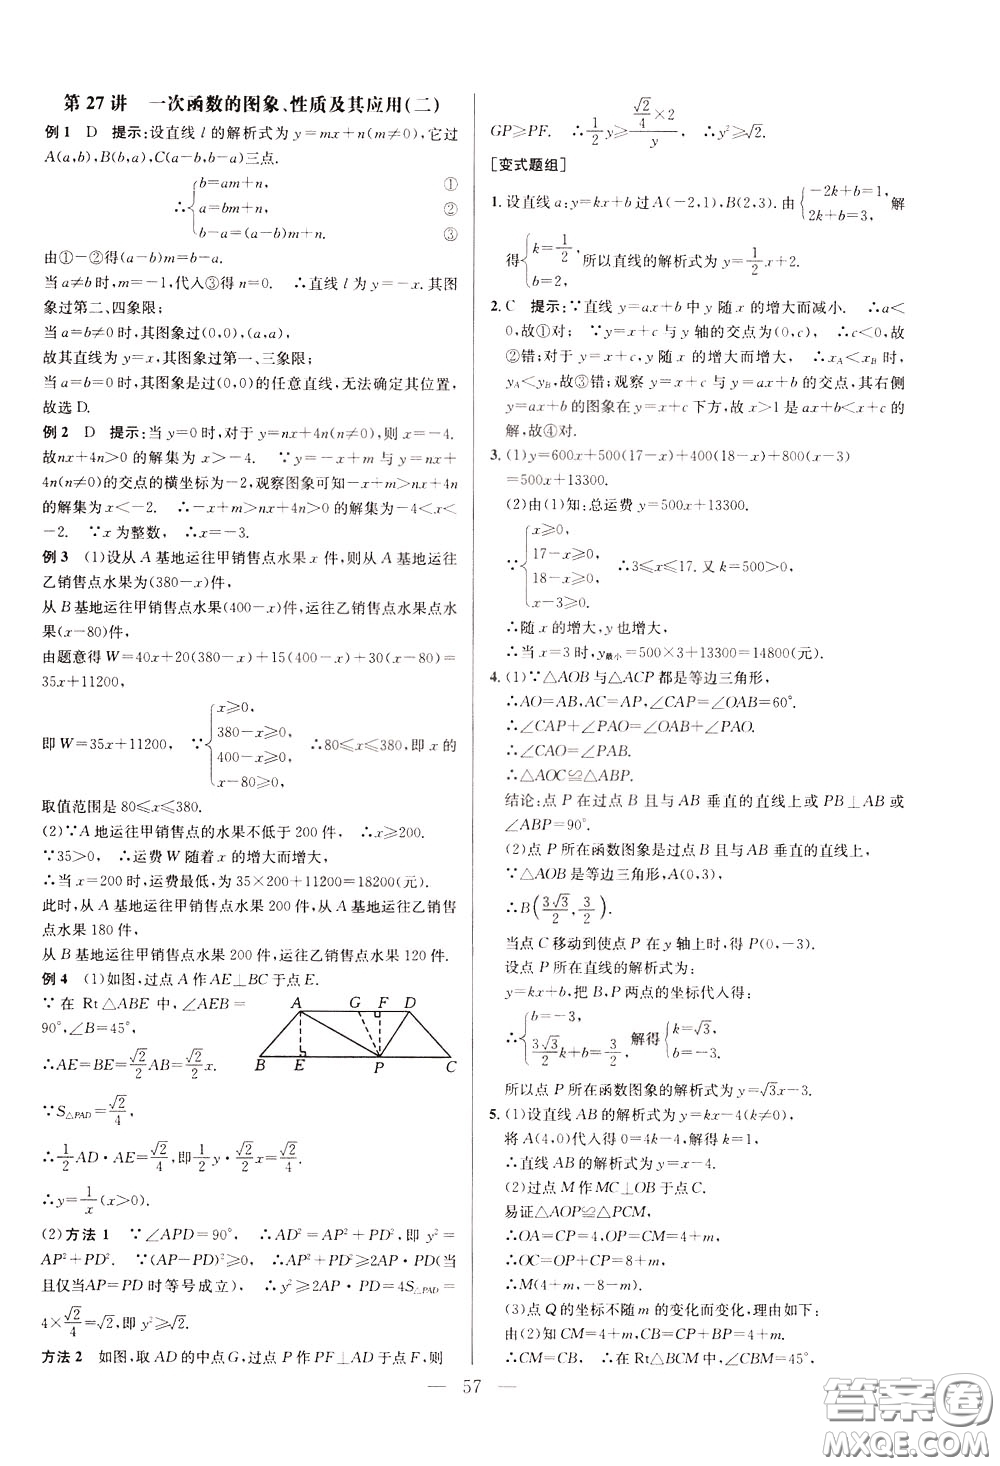 第27讲 一次函数的图象、性质及其应用(二)
例1 D 提示:设直线 l 的解析式为 y=mx+n(m≠0),它过
A(a,b),B(b,a),C(a-b,b-a)三点.
∴{b=am+n, ①
a=bm+n, ②
b-a=(a-b)m+n. ③
由①-②得(a-b)m=b-a.
当 a≠b 时,m=-1,代入③得 n=0. ∴直线 l 为 y=-x.其图
象过第二、四象限;
当 a=b≠0 时,其图象过(0,0),(a,a),
故其直线为 y=x,其图象过第一、三象限;
当 a=b=0 时,其图象是过(0,0)的任意直线,无法确定其位置,
故选 D.
例2 D 提示:当 y=0 时,对于 y=nx+4n(n≠0),则 x=-4.
故nx+4n>0 的解集为 x>-4. ∵y=-x+m 与 y=nx+
4n(n≠0)的交点的横坐标为-2,观察图象可知-x+m>nx+4n
的解集为 x<-2. ∴-x+m>nx+4n>0 的解集为-4<x<
-2. ∵x 为整数, ∴x=-3.
例3 (1)设从 A 基地运往甲销售点水果 x 件,则从 A 基地运往
乙销售点水果为(380-x)件,
从 B 基地运往甲销售点水果(400-x)件,运往乙销售点水果点水
果(x-80)件,
由题意得 W=40x+20(380-x)+15(400-x)+30(x-80)=
35x+11200,
即 W=35x+11200, ∵{x≥0,
380-x≥0,
400-x≥0,
x-80≥0, ∴80≤x≤380,即 x 的
取值范围是 80≤x≤380.
(2)∵A 地运往甲销售点的水果不低于 200 件, ∴x≥200.
∵35>0, ∴运费 W 随着 x 的增大而增大,
∴当 x=200 时,运费最低,为 35×200+11200=18200(元).
此时,从 A 基地运往甲销售点水果 200 件,从 A 基地运往乙销售
点水果 180 件,
从 B 基地运往甲销售点水果 200 件,运往乙销售点水果 120 件.
例4 (1)如图,过点 A 作 AE⊥BC 于点 E.
∵在 Rt△ABE 中,∠AEB=
90°,∠B=45°,
A G F D
B E P C
∴AE=BE=√2/2 AB=√2/2 x.
∵S△PAD=√2/4,
∴1/2 AD·AE=√2/4,即 1/2 y·√2/2 x=√2/4.
∴y=1/x (x>0).
(2)方法1 ∵∠APD=90°, ∴AD²=AP²+PD²,即 y²=
AP²+PD². ∵(AP-PD)²≥0, ∴AP²+PD²≥2AP·PD(当
且仅当AP=PD时等号成立), ∴y²≥2AP·PD=4S△PAD=
4×√2/4=√2,即 y²≥√2.
方法2 如图,取 AD 的中点 G,过点 P 作 PF⊥AD 于点 F,则
GP≥PF. ∴1/2 y≥(√2/4×2)/y. ∴y²≥√2.
[变式题组]
1. 设直线 a:y=kx+b 过 A(-2,1),B(2,3).由{-2k+b=1,
2k+b=3, 解
得{k=1/2
b=2, 所以直线的解析式为 y=1/2 x+2.
2. C 提示:∵直线 y=ax+b 中 y 随 x 的增大而减小. ∴a<
0,故①对; ∵y=x+c 与 y 轴的交点为(0,c), ∴c<0,故
②错;对于 y=x+c,y 随 x 的增大而增大, ∴xA<xB 时,
yA<yB,故③错;观察 y=x+c 与 y=ax+b 的交点,其右侧
y=ax+b 的图象在 y=x+c 下方,故 x>1 是 ax+b<x+c 的
解,故④对.
3. (1)y=600x+500(17-x)+400(18-x)+800(x-3)
=500x+13300.
(2)由(1)知:总运费 y=500x+13300.
∵{x≥0,
17-x≥0,
18-x≥0,
x-3≥0. ∴3≤x≤17.又 k=500>0,
∴随 x 的增大,y 也增大,
∴当 x=3 时,y最小=500×3+13300=14800(元).
4. (1)∵△AOB 与△ACP 都是等边三角形,
∴AO=AB,AC=AP,∠CAP=∠OAB=60°.
∴∠CAP+∠PAO=∠OAB+∠PAO.
∴∠CAO=∠PAB.
∴△AOC≌△ABP.
结论:点 P 在过点 B 且与 AB 垂直的直线上或 PB⊥AB 或
∠ABP=90°.
(2)点 P 所在函数图象是过点 B 且与 AB 垂直的直线上,
∵△AOB 是等边三角形,A(0,3),
∴B(3√3/2,3/2).
当点 C 移动到使点 P 在 y 轴上时,得 P(0,-3).
设点 P 所在的直线的解析式为:
y=kx+b,把 B、P 两点的坐标代入得:
∴{b=-3,
3√3/2 k+b=3/2. 解得{k=√3,
b=-3.
所以点 P 所在函数图象的解析式为 y=√3x-3.
5. (1)设直线 AB 的解析式为 y=kx-4(k≠0),
将 A(4,0)代入得 0=4k-4,解得 k=1,
∴直线 AB 的解析式为 y=x-4.
(2)过点 M 作 MC⊥OB 于点 C.
易证△AOP≌△PCM,
∴OA=CP=4,OP=CM=4+m,
∴OC=OP+CP=8+m,
∴M(4+m,-8-m).
(3)点 Q 的坐标不随 m 的变化而变化,理由如下:
由(2)知 CM=4+m,CB=OC-OB=4+m,
∴CM=CB, ∴在 Rt△BCM 中,∠CBM=45°,
— 57 —
答案卷
MXQE.COM